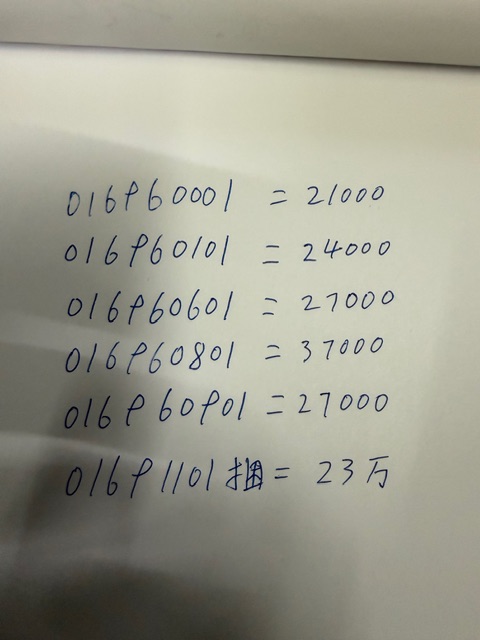 016960001 = 21000
016960101 = 24000
016960601 = 27000
016960801 = 37000
016960901 = 27000
01691101捆 = 23万